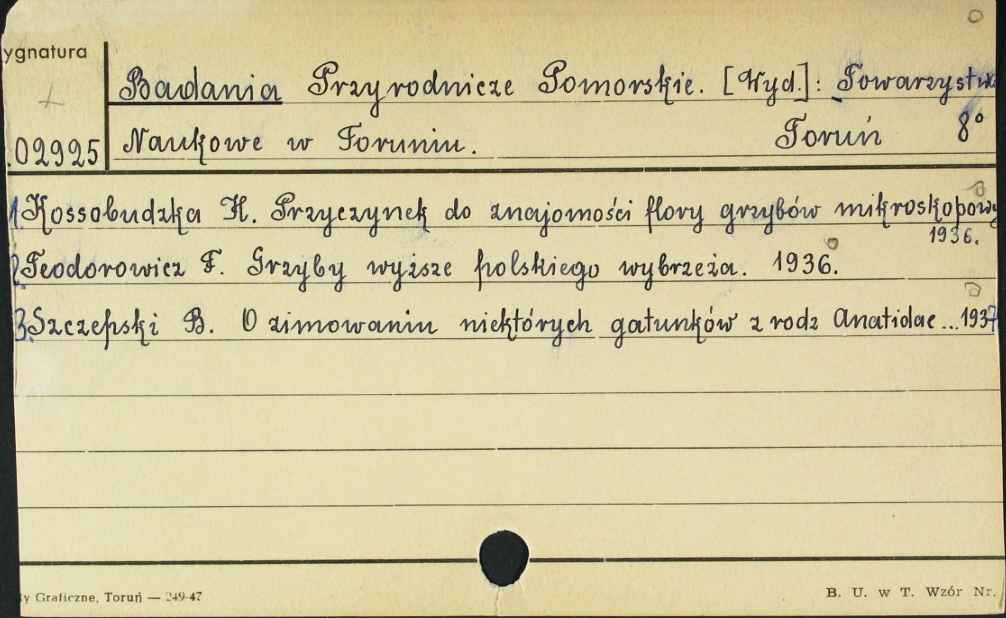 ygnatura
Badania Przyrodnicze Pomorskie. [Wyd.]: Towarzystwo
.02925 Naukowe w Toruniu. Toruń 8°
1. Kossobudzka H. Przyczynek do znajomości flory grzybów mikroskopowy
1936.
2. Teodorowicz F. Grzyby wyższe polskiego wybrzeża. 1936.
3. Szczepski B. O zimowaniu niektórych gatunków z rodz Anatidae ... 1937
y Graficzne, Toruń — 249-47 B. U. w T. Wzór Nr.